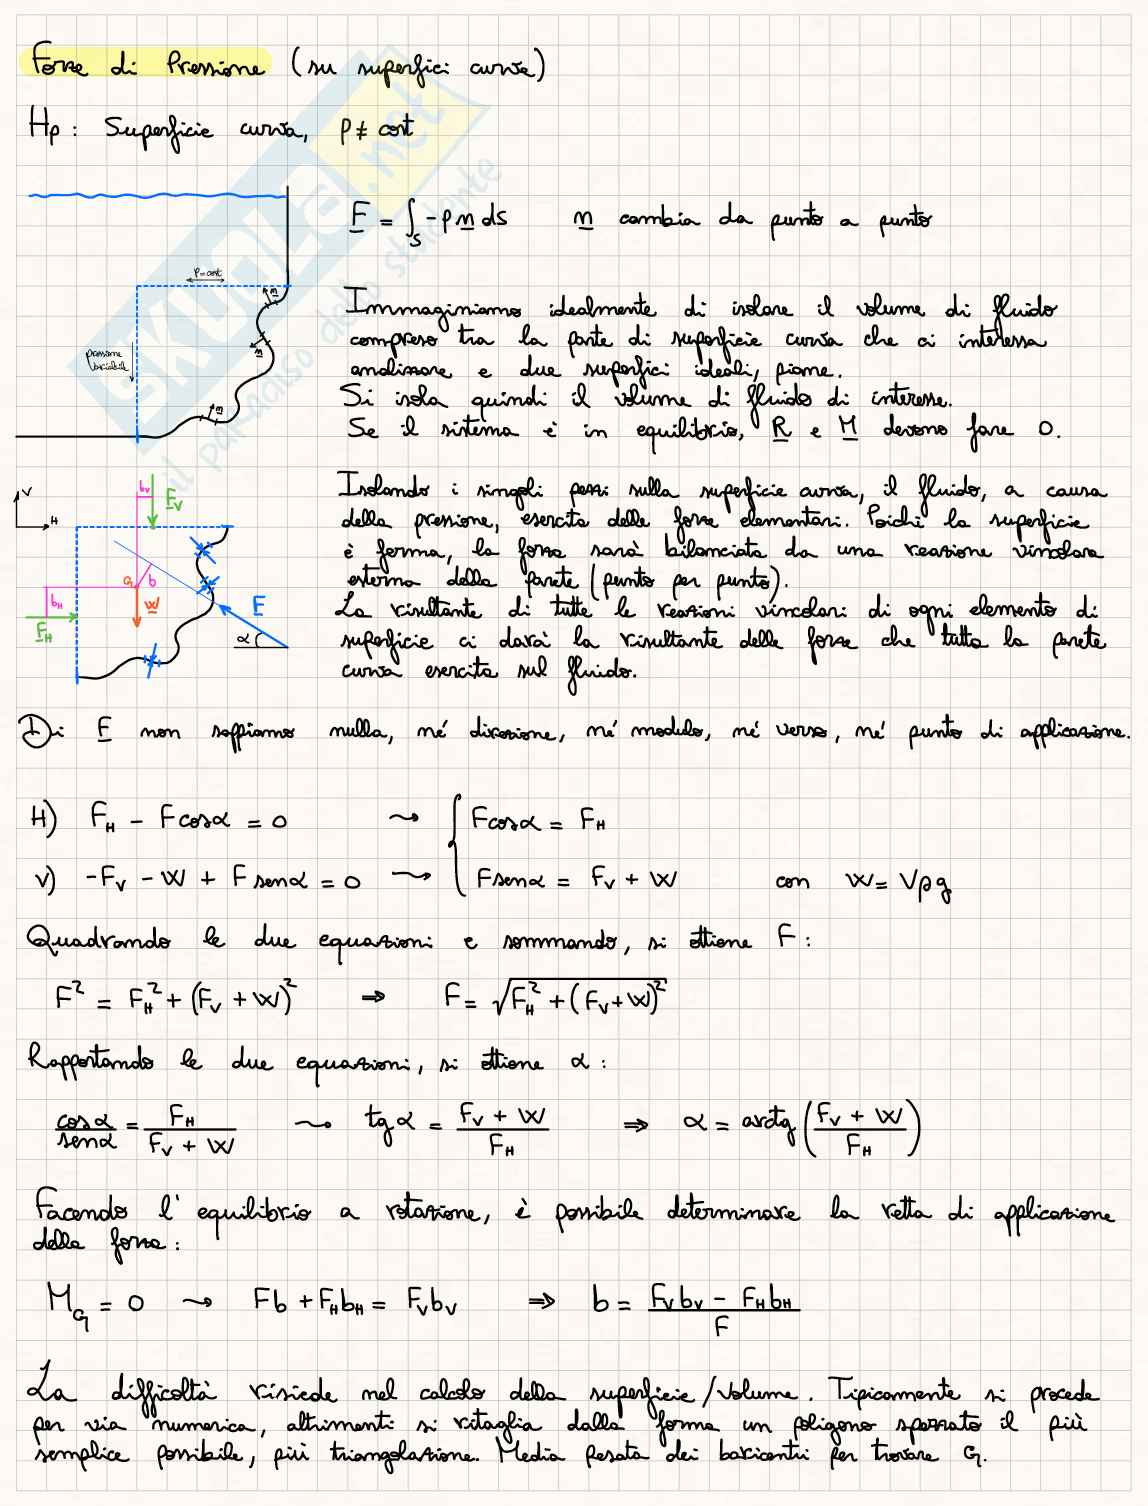 Forze di Pressione (su superfici curve)
Hp: Superficie curva, p ≠ cost
F = ∫_S -p n dS n cambia da punto a punto
p=cost
n
n
n
pressione
variabile
Immaginiamo idealmente di isolare il volume di fluido
compreso tra la parte di superficie curva che ci interessa
analizzare e due superfici ideali, piane.
Si isola quindi il volume di fluido di interesse.
Se il sistema è in equilibrio, R e M devono fare 0.
V
H
b_V
F_V
G
b
b_H
W
F_H
F
α
Isolando i singoli pezzi sulla superficie curva, il fluido, a causa
della pressione, esercita delle forze elementari. Poiché la superficie
è ferma, la forza sarà bilanciata da una reazione vincolare
esterna della parete (punto per punto).
La risultante di tutte le reazioni vincolari di ogni elemento di
superficie ci darà la risultante delle forze che tutta la parete
curva esercita sul fluido.
Di F non sappiamo nulla, né direzione, né modulo, né verso, né punto di applicazione.
H) F_H - F cosα = 0 ⇝ { F cosα = F_H
V) -F_V - W + F senα = 0 ⇝ F senα = F_V + W con W = Vρg
Quadrando le due equazioni e sommando, si ottiene F:
F² = F_H² + (F_V + W)² ⇒ F = √(F_H² + (F_V + W)²)
Rapportando le due equazioni, si ottiene α:
cosα/senα = F_H/(F_V + W) ⇝ tgα = (F_V + W)/F_H ⇒ α = arctg((F_V + W)/F_H)
Facendo l'equilibrio a rotazione, è possibile determinare la retta di applicazione
della forza:
M_G = 0 ⇝ Fb + F_H b_H = F_V b_V ⇒ b = (F_V b_V - F_H b_H)/F
La difficoltà risiede nel calcolo della superficie/volume. Tipicamente si procede
per via numerica, altrimenti si ritaglia dalla forma un poligono spezzato il più
semplice possibile, più triangolazione. Media pesata dei baricentri per trovare G.
SKUOLA.net
il paradiso dello studente